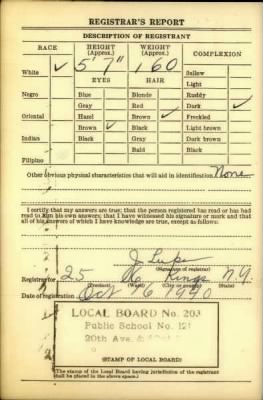 REGISTRAR'S REPORT
DESCRIPTION OF REGISTRANT
RACE HEIGHT (Approx.) WEIGHT (Approx.) COMPLEXION
White ✓ 5' 7" 160 Sallow
EYES HAIR Light
Negro Blue Blonde Ruddy
Gray Red Dark ✓
Oriental Hazel Brown ✓ Freckled
Brown ✓ Black Light brown
Indian Black Gray Dark brown
Bald Black
Filipino
Other obvious physical characteristics that will aid in identification None
I certify that my answers are true; that the person registered has read or has had
read to him his own answers; that I have witnessed his signature or mark and that
all of his answers of which I have knowledge are true, except as follows:
J
(Signature of registrar)
Registrar for 25 Kings N.Y.
(Precinct) (Ward) (City or county) (State)
Date of registration Oct 16 1940
LOCAL BOARD No. 203
Public School No. 121
20th Ave. &
(STAMP OF LOCAL BOARD)
(The stamp of the Local Board having jurisdiction of the registrant
shall be placed in the above space.)